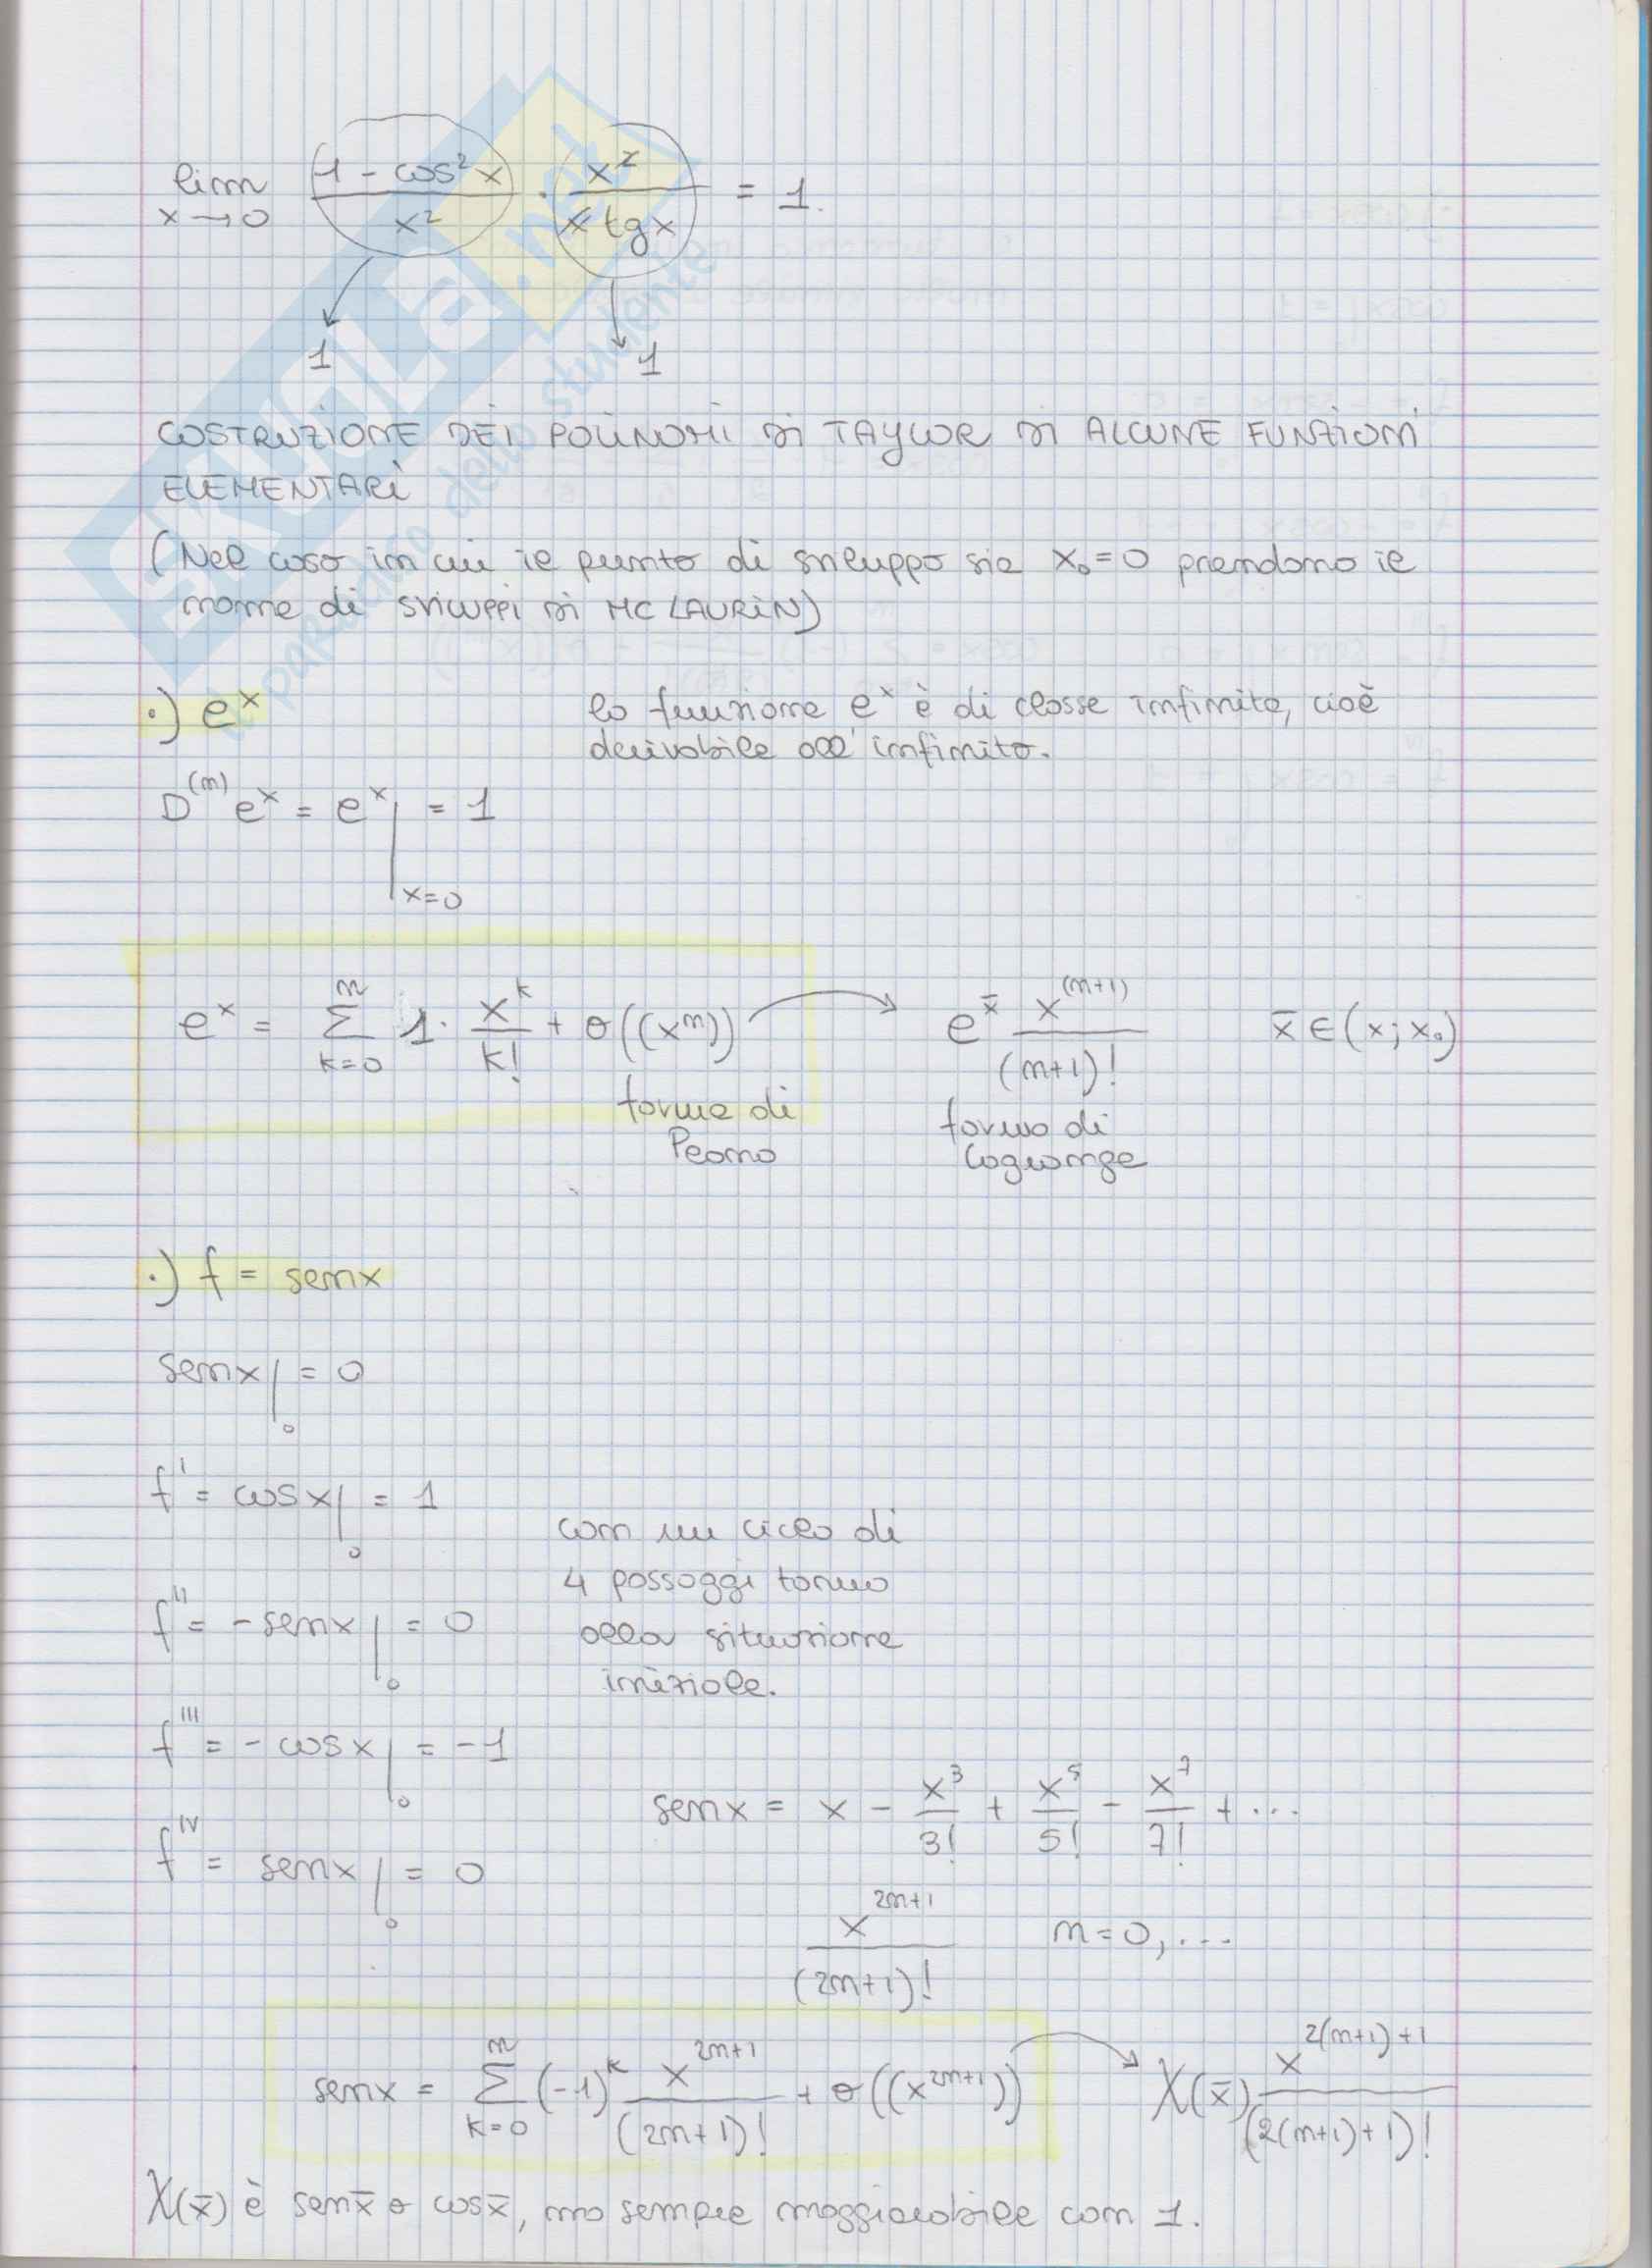 lim x→0 (1 - cos²x)/x² · x²/(x tgx) = 1.
1 1
COSTRUZIONE DEI POLINOMI DI TAYLOR DI ALCUNE FUNZIONI
ELEMENTARI
(Nel caso in cui il punto di sviluppo sia x₀=0 prendono il
nome di SVILUPPI DI MC LAURIN)
·) eˣ la funzione eˣ è di classe infinita, cioè
derivabile all'infinito.
D⁽ⁿ⁾ eˣ = eˣ|x=0 = 1
eˣ = Σ_{k=0}^{n} 1· x^k/k! + o((xⁿ)) → e^x̄ x^(n+1)/(n+1)! x̄ ∈ (x; x₀)
forma di Peano
forma di Lagrange
·) f = senx
senx|₀ = 0
f' = cosx|₀ = 1
con un ciclo di
4 passaggi torno
alla situazione
iniziale.
f'' = -senx|₀ = 0
f''' = -cosx|₀ = -1
senx = x - x³/3! + x⁵/5! - x⁷/7! + ...
f^IV = senx|₀ = 0
x^(2n+1)/(2n+1)! n=0,...
senx = Σ_{k=0}^{n} (-1)^k x^(2n+1)/(2n+1)! + o((x^(2n+1))) → X(x̄) x^(2(n+1)+1)/(2(n+1)+1)!
X(x̄) è senx̄ o cosx̄, ma sempre maggiorabile con 1.
SKUOLA.net
il paradiso dello studente